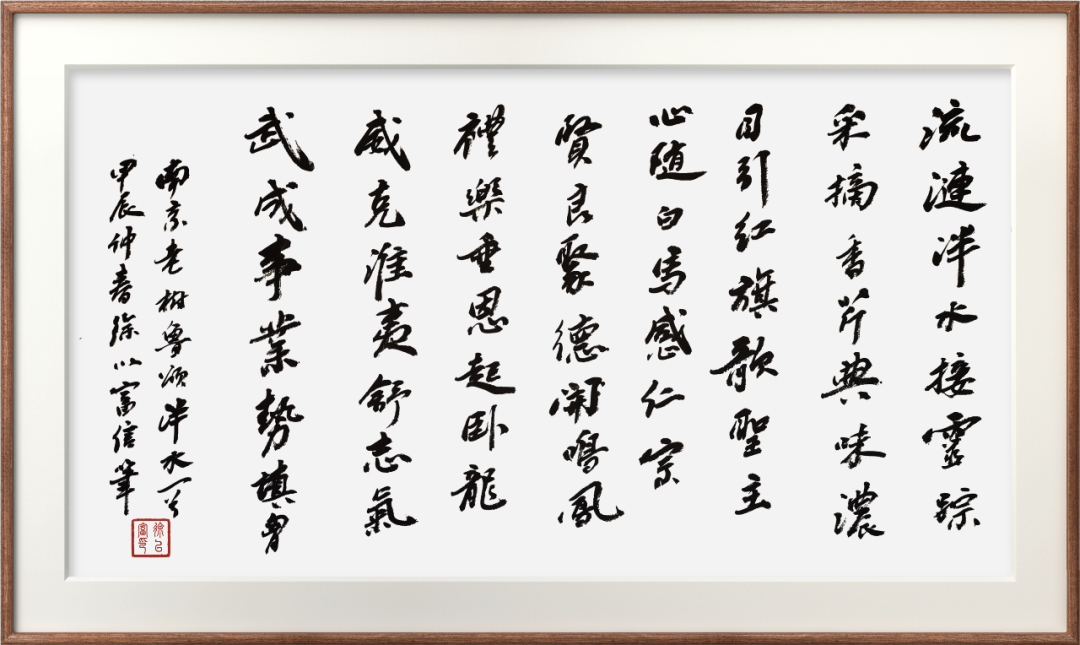 流漣泮水接靈踪
采摘香芹典味濃
目引紅旗歌聖主
心随白馬感仁宗
賢良聚德聞鳴鳳
禮樂垂恩起卧龍
威克淮夷舒志氣
武成事業勢填胷
南京老樹魯頌泮水一首
甲辰仲春徐以富信筆